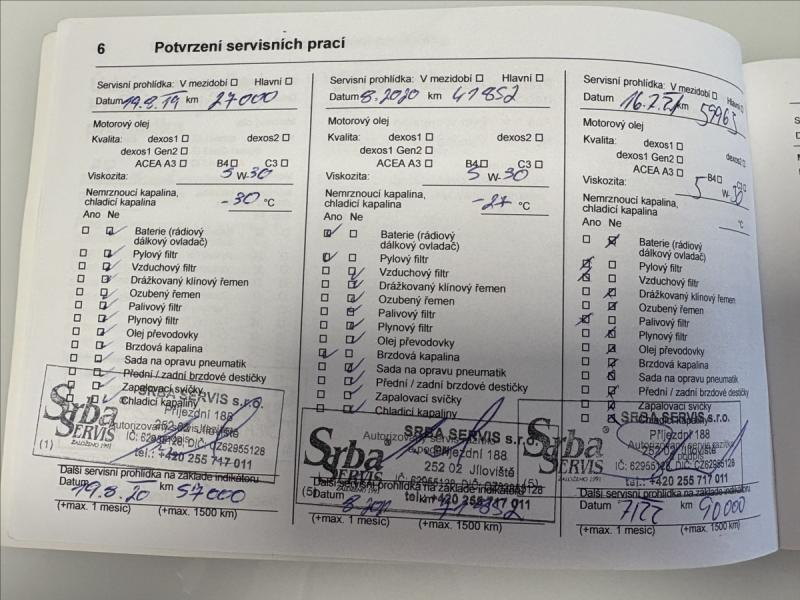 6 Potvrzení servisních prací
Servisní prohlídka: V mezidobí Hlavní
Datum 19.8.19 km 27000
Motorový olej
Kvalita: dexos1 dexos2
dexos1 Gen2
ACEA A3 B4 C3
Viskozita: 5 W-30
Nemrznoucí kapalina,
chladicí kapalina -30 °C
Ano Ne
Baterie (rádiový
dálkový ovladač)
Pylový filtr
Vzduchový filtr
Drážkovaný klínový řemen
Ozubený řemen
Palivový filtr
Plynový filtr
Olej převodovky
Brzdová kapalina
Sada na opravu pneumatik
Přední / zadní brzdové destičky
Zapalovací svíčky
Chladicí kapaliny
Srba
SERVIS
ZALOŽENO 1991
SRBA SERVIS s.r.o.
Příjezdní 188
252 02 Jíloviště
IČ: 62955128, DIČ: CZ62955128
tel.: +420 255 717 011
(1)
Další servisní prohlídka na základě indikátoru
Datum 19.8.20 km 57000
(+max. 1 měsíc) (+max. 1500 km)
Servisní prohlídka: V mezidobí Hlavní
Datum 8.2020 km 41852
Motorový olej
Kvalita: dexos1 dexos2
dexos1 Gen2
ACEA A3 B4 C3
Viskozita: 5 W-30
Nemrznoucí kapalina,
chladicí kapalina -27 °C
Ano Ne
Baterie (rádiový
dálkový ovladač)
Pylový filtr
Vzduchový filtr
Drážkovaný klínový řemen
Ozubený řemen
Palivový filtr
Plynový filtr
Olej převodovky
Brzdová kapalina
Sada na opravu pneumatik
Přední / zadní brzdové destičky
Zapalovací svíčky
Chladicí kapaliny
Srba
SERVIS
ZALOŽENO 1991
SRBA SERVIS s.r.o.
Příjezdní 188
252 02 Jíloviště
IČ: 62955128, DIČ: CZ62955128
tel.: +420 255 717 011
(5)
Další servisní prohlídka na základě indikátoru
Datum km 71852
(+max. 1 měsíc) (+max. 1500 km)
Servisní prohlídka: V mezidobí Hlavní
Datum 16.2.21 km 59963
Motorový olej
Kvalita: dexos1 dexos2
dexos1 Gen2
ACEA A3 B4 C3
Viskozita: 5 W-30
Nemrznoucí kapalina,
chladicí kapalina °C
Ano Ne
Baterie (rádiový
dálkový ovladač)
Pylový filtr
Vzduchový filtr
Drážkovaný klínový řemen
Ozubený řemen
Palivový filtr
Plynový filtr
Olej převodovky
Brzdová kapalina
Sada na opravu pneumatik
Přední / zadní brzdové destičky
Zapalovací svíčky
Chladicí kapaliny
Srba
SERVIS
ZALOŽENO 1991
SRBA SERVIS s.r.o.
Příjezdní 188
252 02 Jíloviště
IČ: 62955128, DIČ: CZ62955128
tel.: +420 255 717 011
(5)
Další servisní prohlídka na základě indikátoru
Datum 7/22 km 90000
(+max. 1 měsíc) (+max. 1500 km)